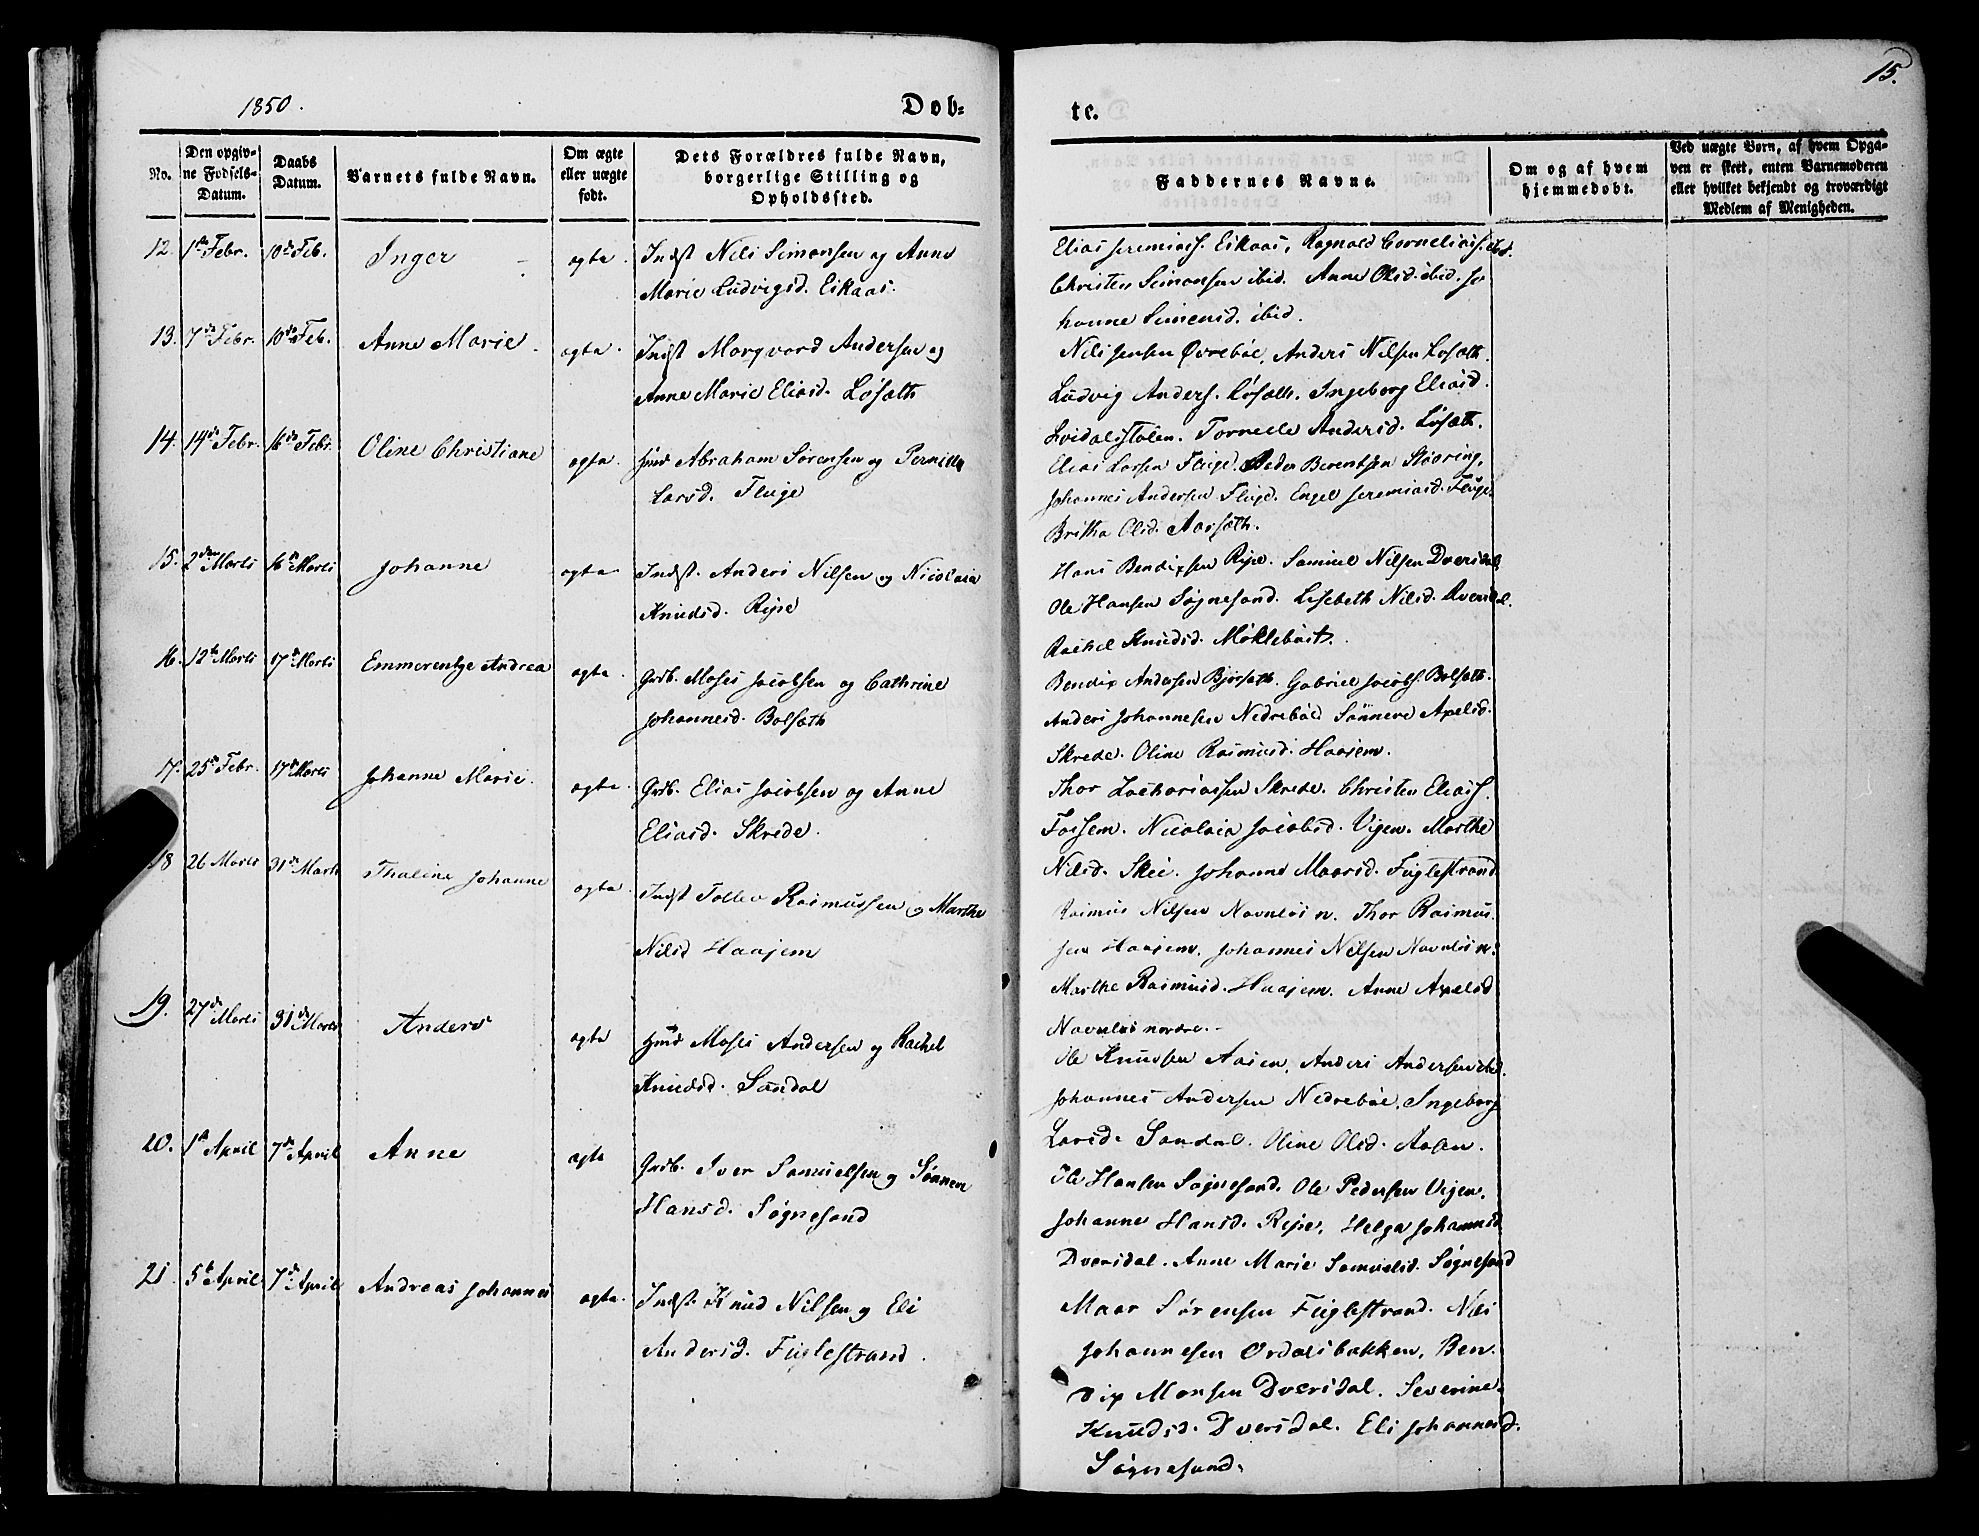 1850.
Døb=
te.
15.
No.
Den opgiv-
ne Fødsels-
Datum.
Daabs
Datum.
Barnets fulde Navn.
Om ægte
eller uægte
født.
Dets Forældres fulde Navn,
borgerlige Stilling og
Opholdssted.
Faddernes Navne.
Om og af hvem
hjemmedøbt.
Ved uægte Børn, af hvem Opga-
ven er skeet, enten Barnemoderen
eller hvilket bekjendt og troværdigt
Medlem af Menigheden.
12. 1ste Febr. 10de Feb. Inger ægte. Indst Nils Simonsen og Anne
Marie Ludvigsd. Eikaas.
Elias Jeremiass. Eikaas, Ragnald Corneliuss. ibd.
Christen Simonsen ibid. Anne Olsd. ibid. Jo-
hanne Simensd. ibid.
13. 7de Febr. 10de Feb. Anne Marie ægte. Indst Morqvard Andersen og
Anne Marie Eliasd. Løsæth
Nils Jensen Øvrebøe, Anders Nilsen Løsæth.
Ludvig Anders. Løsæth. Ingeborg Eliasd.
Tornelle Andersd. Løsæth.
14. 14de Febr. 16de Febr. Oline Christiane ægte. Abraham Sørensen og Pernille
Larsd. Fluge
Elias Larsen Fluge. Peder Berentsen Støoring,
Johannes Andersen Fluge. Engel Jeremiasd. Fluge.
Britha Olsd. Aarsæth.
15. 2den Marts 16de Marts Johanne ægte Indst. Anders Nilsen og Nicolaia
Knudsd. Ripe
Hans Bendixsen Ripe. Samuel Nilsen Dversdal
Ole Hansen Søgnesand. Lisebeth Nilsd. Dversdal.
Rachel Knudsd. Møklebust.
16. 12te Marts 17de Marts Emmerentze Andrea ægte. Grdb. Moses Jacobsen og Cathrine
Johannesd. Bolsæth
Bendix Andersen Bjørsæth. Gabriel Jacobs. Bolsæth.
Anders Johannesen Nedrebøe Sønneve Axelsd.
Skrede. Oline Rasmusd. Haajem.
17. 25de Febr. 17de Marts Johanne Marie. ægte. Grdb. Elias Jacobsen og Anne
Eliasd. Skrede.
Thor Zachariassen Skrede. Christen Eliass.
Fossem. Nicolaia Jacobsd. Vigen. Marthe
Nilsd. Skei. Johanne Maarsd. Fuglestrand
18 26 Marts 31de Marts Thaline Johanne ægte. Indst Tollev Rasmussen og Marthe
Nilsd Haajem
Rasmus Nilsen Navnløs n. Thor Rasmus-
sen Haajem. Johannes Nilsen Navnløs n.
Marthe Rasmusd. Haajem. Anne Axelsd
Navnløs nordre.
19. 27de Marts 31de Marts Anders ægte Moses Andersen og Rachel
Knudsd. Sandal
Ole Knudsen Aasen, Anders Andersen ibid.
Johannes Andersen Nedrebøe, Ingeborg
Larsd. Sandal. Oline Olsd. Aasen.
20. 1ste April 7de April Anne ægte Grdb. Iver Samuelsen og Sønneve
Hansd. Søgnesand
Ole Hansen Søgnesand. Ole Pedersen Vigen.
Johanne Hansd. Ripe, Helga Johannesd
Dversdal. Anne Marie Samuelsd. Søgnesand
21. 5te April 7de April Andreas Johannes ægte. Indst. Knud Nilsen og Eli
Andersd. Fuglestrand.
Maar Sørensen Fuglestrand. Nils
Johannesen Ordalsbakken, Ben-
dix Monsen Dversdal. Severine
Knudsd. Dversdal. Eli Johannesd.
Søgnesand.